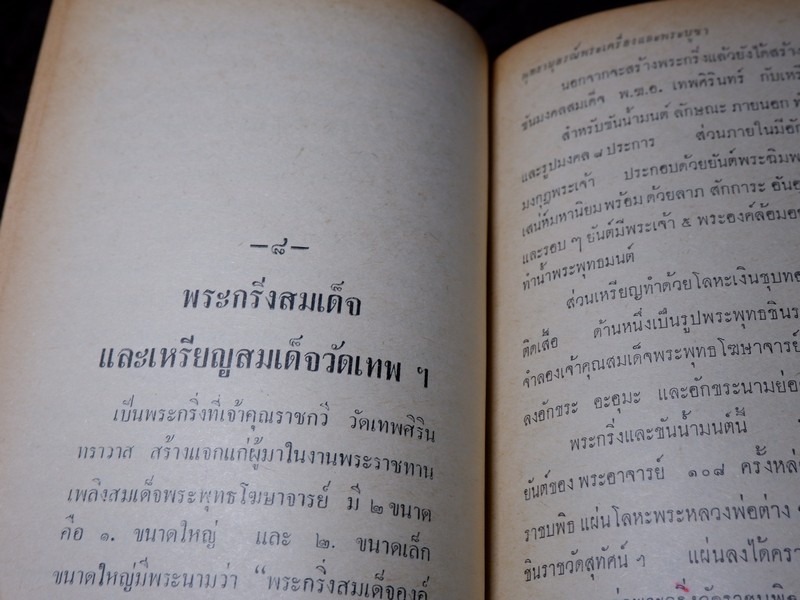 —๘—
พระกริ่งสมเด็จ
และเหรียญสมเด็จวัดเทพ ฯ
เป็นพระกริ่งที่เจ้าคุณราชกวี วัดเทพศิริน
ทราวาส สร้างแจกแก่ผู้มาในงานพระราชทาน
เพลิงสมเด็จพระพุทธโฆษาจารย์ มี ๒ ขนาด
คือ ๑. ขนาดใหญ่ และ ๒. ขนาดเล็ก
ขนาดใหญ่มีพระนามว่า “พระกริ่งสมเด็จองค์
นอกจากจะสร้างพระกริ่งแล้วยังได้สร้าง
ขันมงคลสมเด็จ พ.ฆ.อ. เทพศิรินทร์ กับเหรี
สำหรับขันน้ำมนต์ ลักษณะ ภายนอก
และรูปมงคล ๘ ประการ ส่วนภายในมีอัก
มงกุฎพระเจ้า ประกอบด้วยยันต์พระฉิมพ
เสน่ห์มหานิยม พร้อม ด้วยลาภ สักการะ อัน
และรอบ ๆ ยันต์มีพระเจ้า ๕ พระองค์ล้อม
ทำน้ำพระพุทธมนต์
ส่วนเหรียญทำด้วยโลหะเงินชุบทอ
ติดเสื้อ ด้านหนึ่งเป็นรูปพระพุทธชินร
จำลองเจ้าคุณสมเด็จพระพุทธโฆษาจารย์
ลงอักขระ อะอุมะ และอักขระนามย่อ
พระกริ่งและขันน้ำมนต์นี้
ยันต์ของ พระอาจารย์ ๑๐๘ ครั้งหล่
ราชบพิธ แผ่นโลหะพระหลวงพ่อต่าง
ชินราชวัดสุทัศน์ ฯ แผ่นลงได้ครา